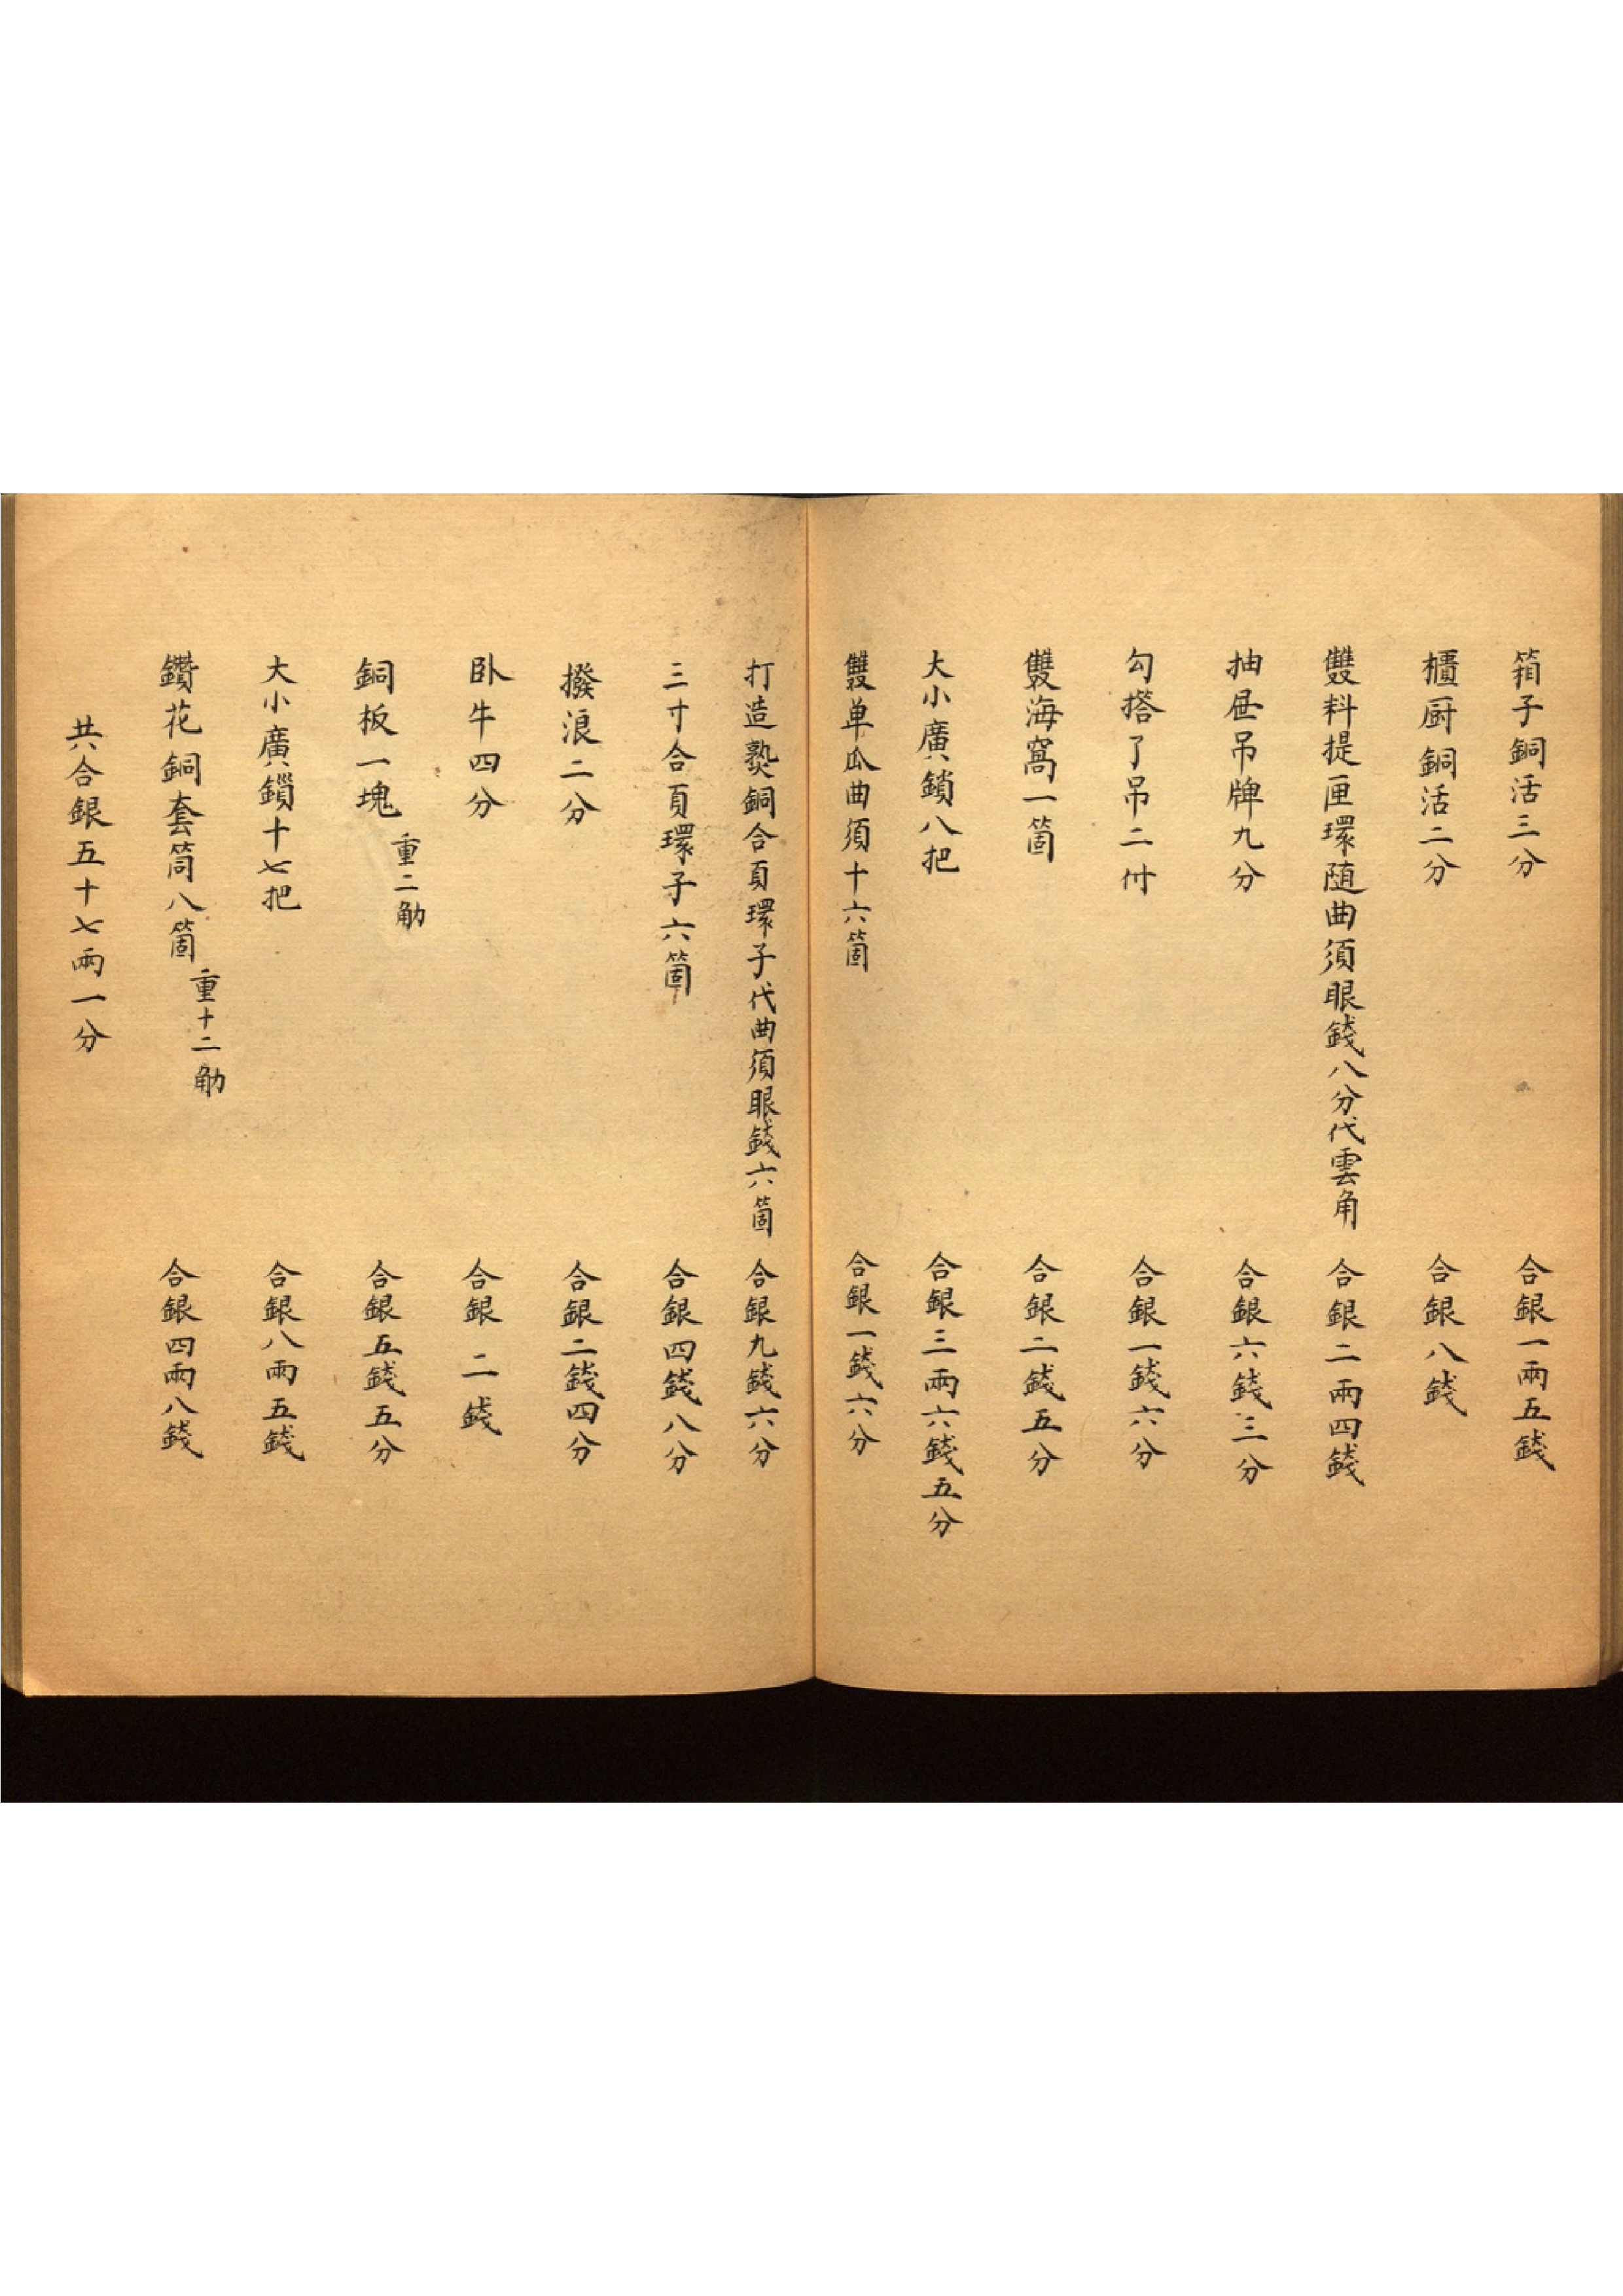 箱子銅活三分 合銀一兩五錢
櫃厨銅活二分 合銀八錢
雙料提匣環随曲須眼錢八分代雲角 合銀二兩四錢
抽屉吊牌九分 合銀六錢三分
勾搭了吊二付 合銀一錢六分
雙海窩一箇 合銀二錢五分
大小廣鎖八把 合銀三兩六錢五分
雙单瓜曲須十六箇 合銀一錢六分
打造𤍠銅合頁環子代曲須眼錢六箇 合銀九錢六分
三寸合頁環子六箇 合銀四錢八分
撥浪二分 合銀二錢四分
卧牛四分 合銀二錢
銅板一塊 重二觔 合銀五錢五分
大小廣鎻十七把 合銀八兩五錢
鑽花銅套筒八箇 重十二觔 合銀四兩八錢
共合銀五十七兩一分